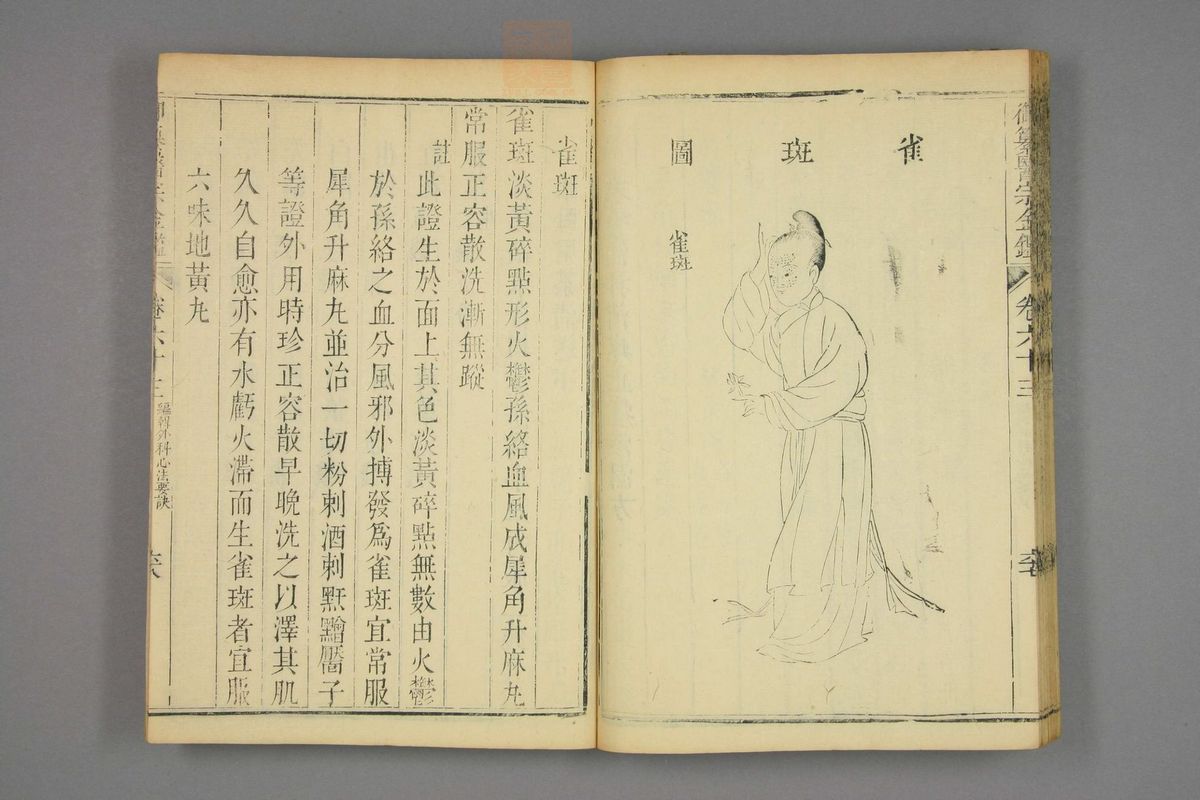 御纂醫宗金鑑
卷六十三
雀斑圖
雀斑
雀斑
雀斑淡黃碎點形火鬱孫絡血風成犀角升麻丸
常服正容散洗漸無蹤
註此證生於面上其色淡黃碎點無數由火鬱
於孫絡之血分風邪外搏發爲雀斑宜常服
犀角升麻丸並治一切粉刺酒刺䵟黵靨子
等證外用時珍正容散早晚洗之以澤其肌
久久自愈亦有水虧火滯而生雀斑者宜服
六味地黃丸
卷六十三
編輯外科心法要訣
六八